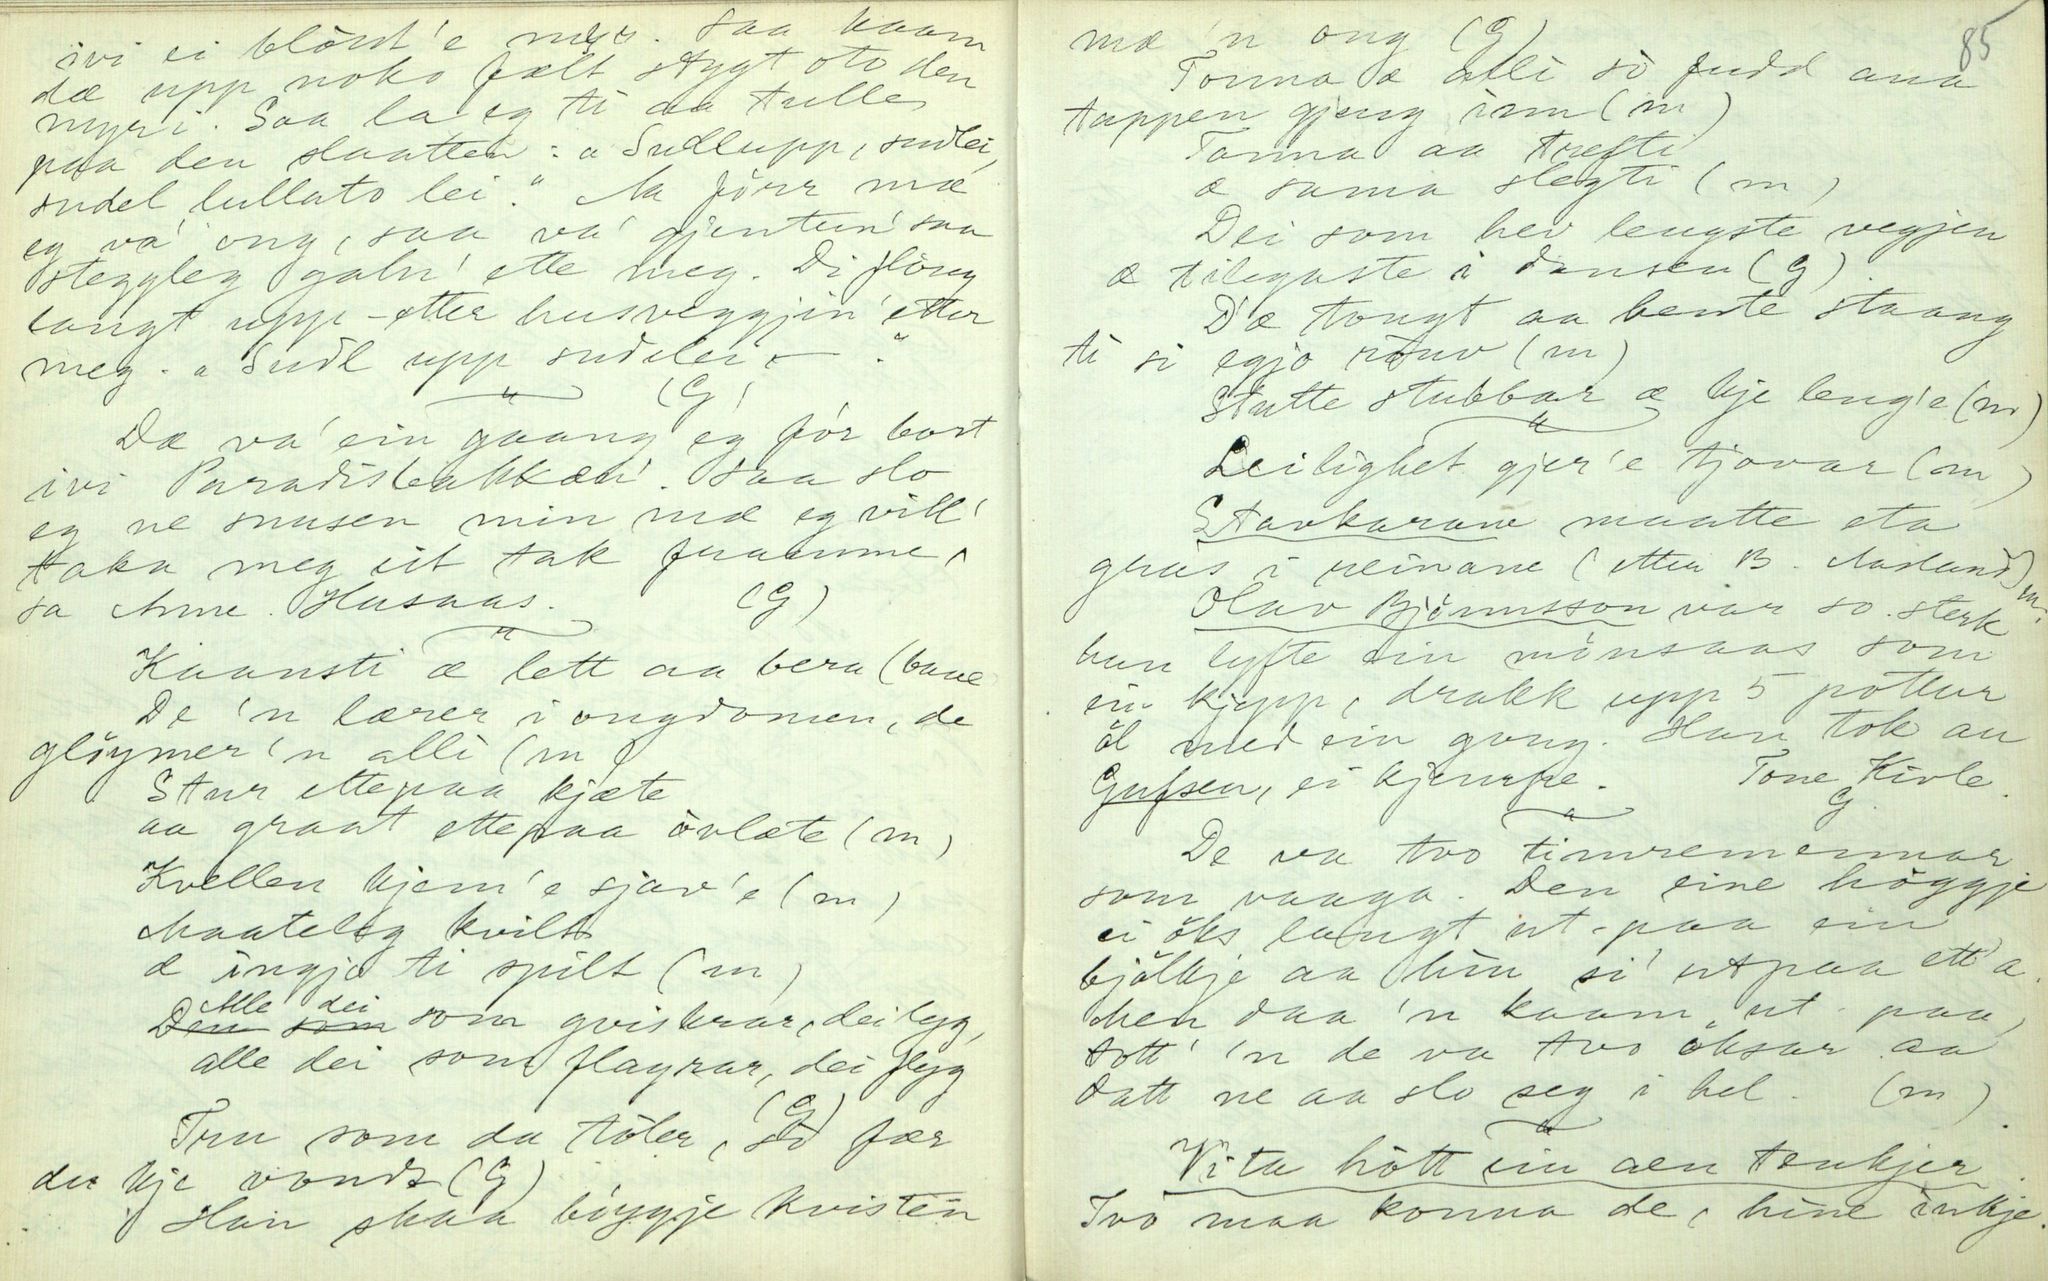 ivi ei blöud'e myr. Saa kaam
dæ upp noko fælt stygt oto den
myri. Saa la eg ti aa tulle
paa den slaatten: „Sudlupp, sudlei,
sudel lullato lei." Aa förr mæ
eg va' ong, saa va' gjentun' saa
steggleg galn' ette meg. Di flöug
langt upp-etter husveggjin' etter
meg. „Sudl upp sudelei — "
(G)
Dæ va' ein gaang eg fór bort
ivi Paradisbakkæn'. Saa slo
eg ne snusen min mæ eg vill'
taka meg eit tak framme,
sa Anne Husaas. (G)
Kunnsti æ lett aa bera (bane
De 'n lærer i ongdomen, de
glöymer 'n alli (m)
Stur ettepaa kjæte
aa graat ettepaa ovlæte (m)
Kvellen kjem'e sjav'e (m)
Maateleg kvilt
æ ingjo ti spilt (m)
Alle dei
Den som som gviskrar, dei lyg,
alle dei som flagrar, dei flyg
(G)
Tru som du töler, so fær
du kje vondt (G)
Han skaa böyggje kvisten
85
mæ 'n ong (G)
Tonna æ alli so fudd ana
tappen gjeng inn (m)
Tonna aa trefti
æ sama slegti (m)
Dei som hev lengste vegjen
æ tilegaste i dansen (G)
D'æ tongt aa bente staang
ti si egjo rouv (m)
Stutte stubbar æ kje leng'e (m)
Leilighet gjer'e tjovar (m)
Stavkarane maatte eta
gras i reinane (etter B. Aasland) m.
Olav Björnsson var so sterk
han lyfte ein mönsaas som
ein kjepp, drakk upp 5 pottur
öl med ein gong. Han tok au
Gufsen, ei kjempe. Tone Kivle
G.
De va tvo timremennar
som vaaga. Den eine höggje
ei öks langt ut-paa ein
bjölkje aa hin si' utpaa ett'a.
Men daa 'n kaam ut paa,
tott' 'n de va tvo öksar aa
datt ne aa slo seg i hel. (m)
Vita hött ein aen tenkjer.
Tvo maa konna de, hine inkje.